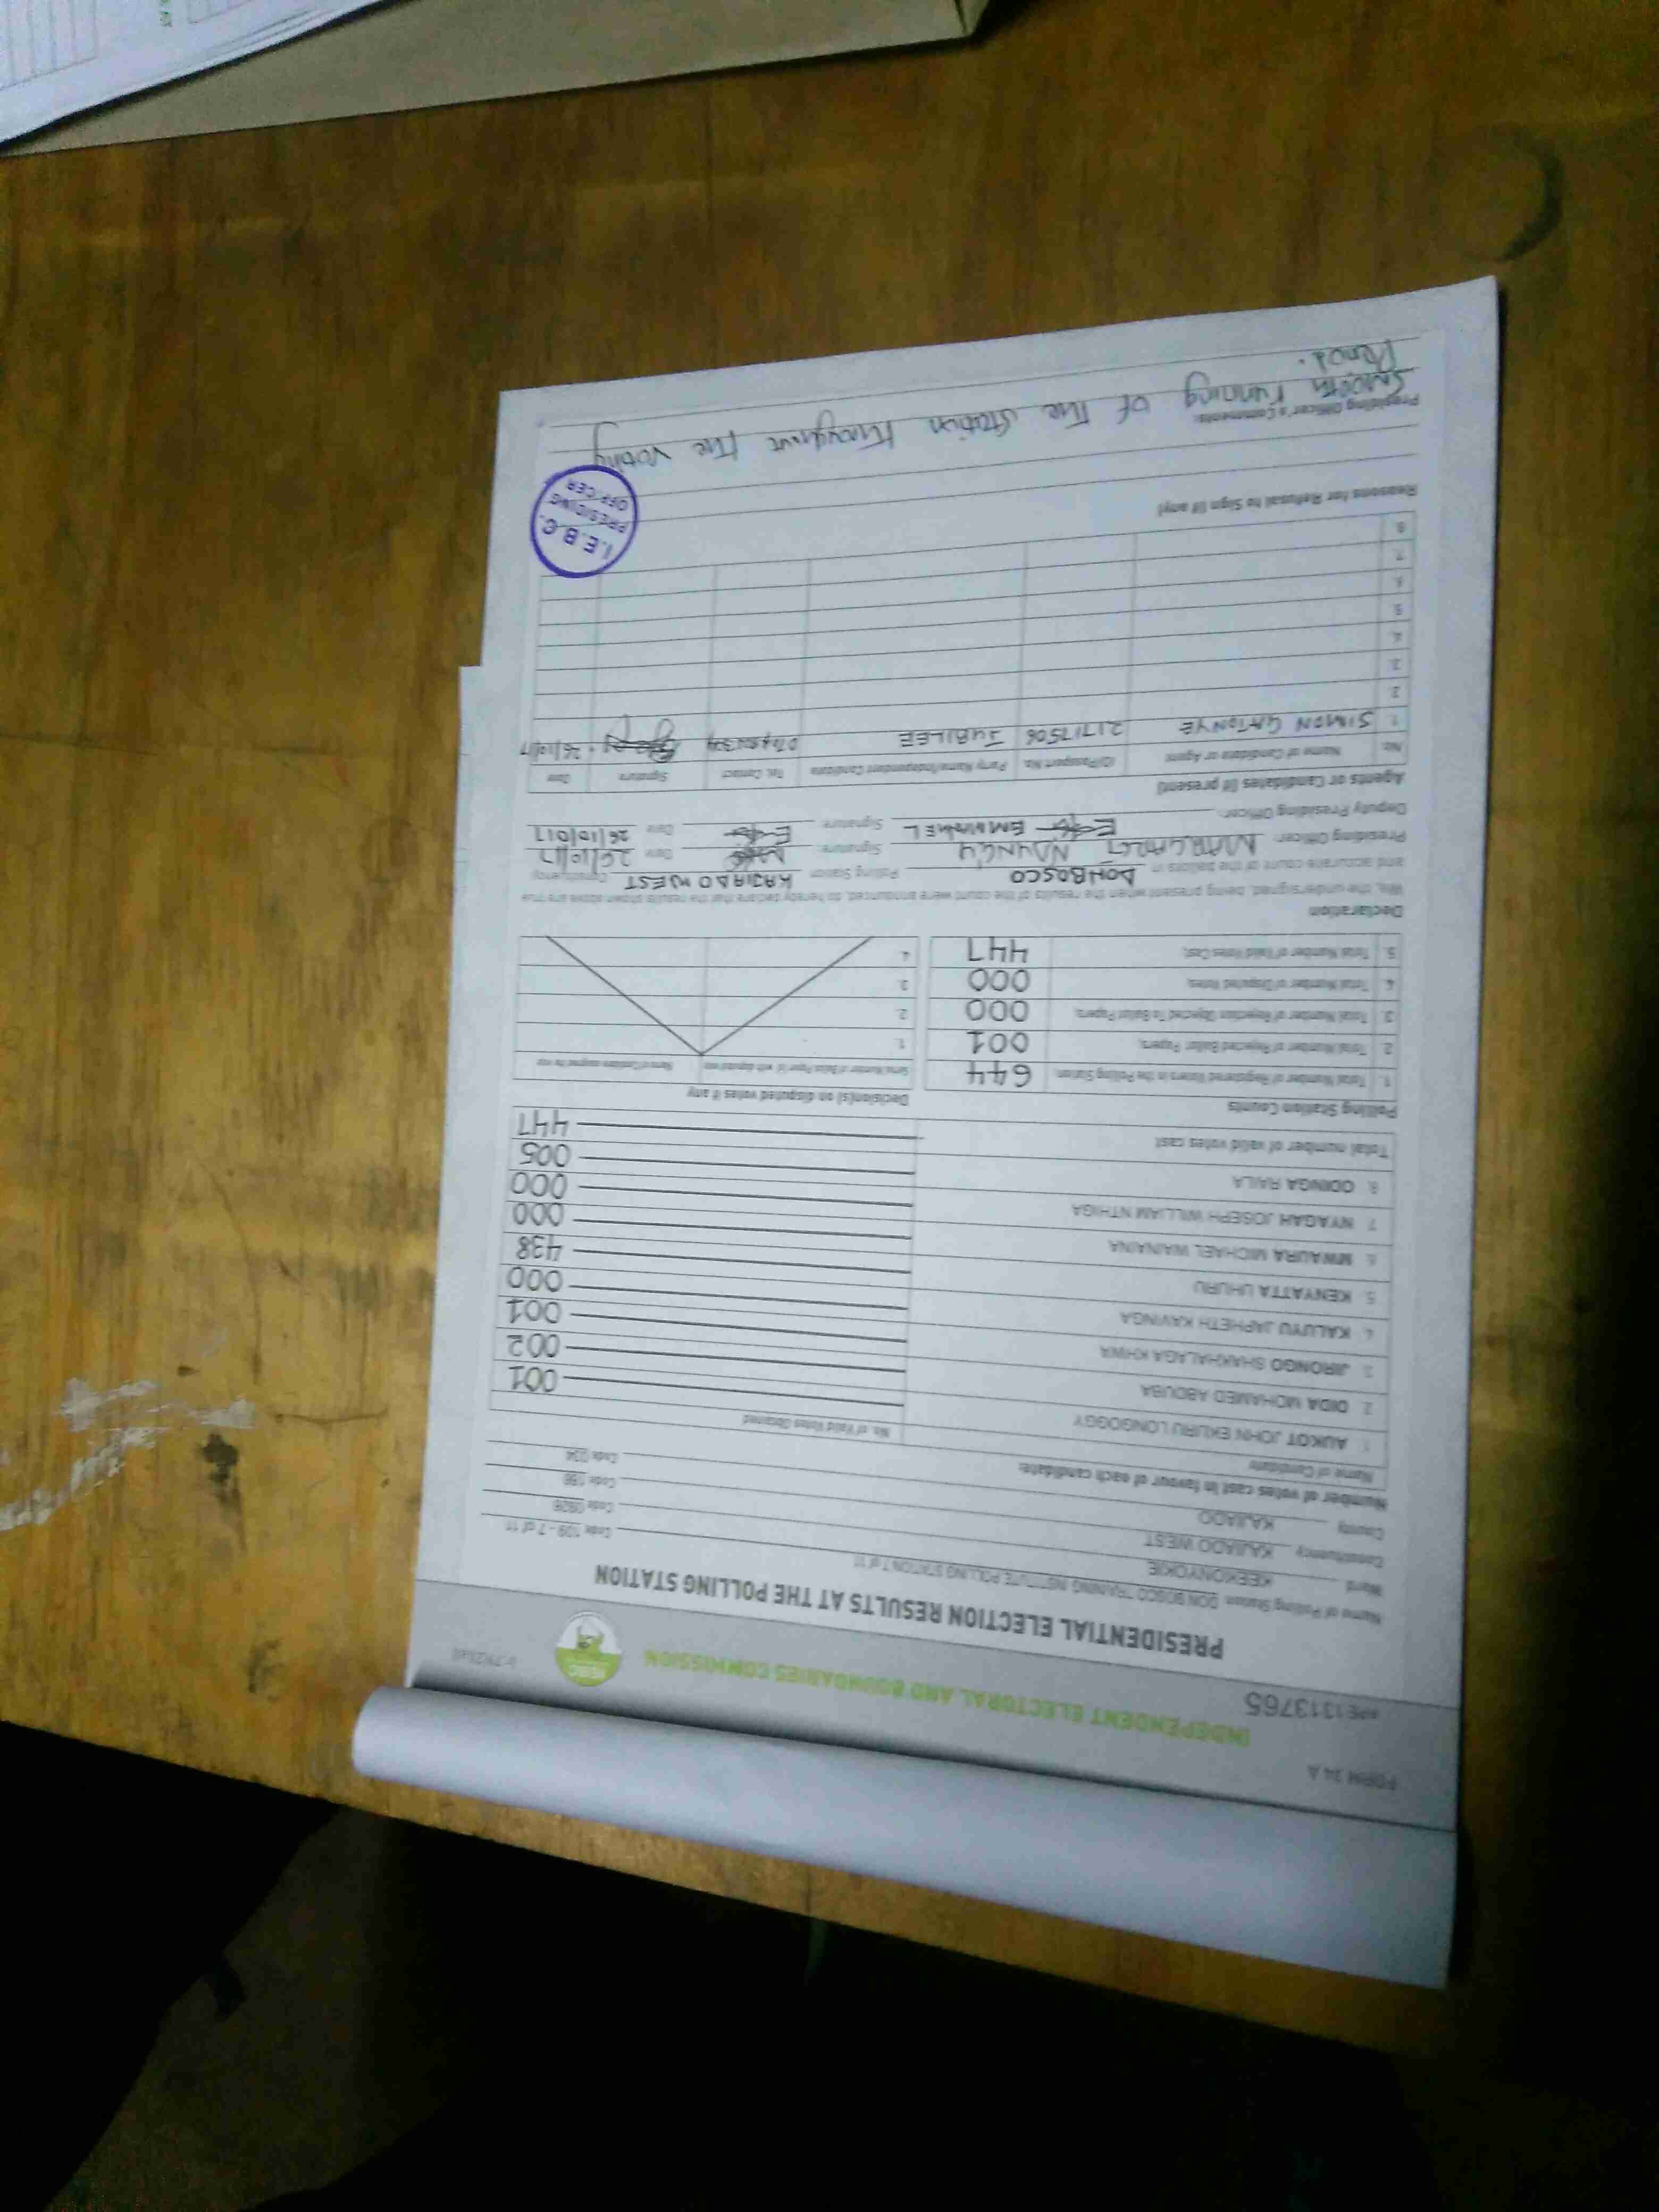 FORM 34 A
INDEPENDENT ELECTORAL AND BOUNDARIES COMMISSION
#PE1313765
IEBC
PRESIDENTIAL ELECTION RESULTS AT THE POLLING STATION
Name of Polling Station DON BOSCO TRAINING INSTITUTE POLLING STATION 7 of 11 Code 109 - 7 of 11
Ward KEEKONYOKIE Code 0926
Constituency KAJIADO WEST Code 186
County KAJIADO Code 034
Number of votes cast in favour of each candidate:
Name of Candidate No. of Valid Votes Obtained
1. AUKOT JOHN EKURU LONGOGGY 001
2. DIDA MOHAMED ABDUBA 002
3. JIRONGO SHAKHALAGA KHWA 001
4. KALUYU JAPHETH KAVINGA 000
5. KENYATTA UHURU 438
6. MWAURA MICHAEL WAINAINA 000
7. NYAGAH JOSEPH WILLIAM NTHIGA 000
8. ODINGA RAILA 005
Total number of valid votes cast 447
Polling Station Counts Decision(s) on disputed votes if any
1. Total Number of Registered Voters in the Polling Station 644
2. Total Number of Rejected Ballot Papers. 001
3. Total Number of Rejection Objected To Ballot Papers. 000
4. Total Number of Disputed Votes. 000
5. Total Number of Valid Votes Cast. 447
Serial Number of Ballot Paper (s) with disputed vote Name of Candidate assigned the vote
1.
2.
3.
4.
Declaration
We, the undersigned, being present when the results of the count were announced, do hereby declare that the results shown above are true
and accurate count of the ballots in DON BOSCO Polling Station KAJIADO WEST Constituency
Presiding Officer: MARGARET Signature: Date 26/10/17
Deputy Presiding Officer: EMMANUEL Signature: Date 26/10/017
Agents or Candidates (if present)
No. Name of Candidate or Agent ID/Passport No. Party Name/Independent Candidate Tel. Contact Signature Date
1. SIMON GATONYE 21717506 JUBILEE 26/10/17
2.
3.
4.
5.
6.
7.
8.
Reasons for Refusal to Sign (if any)
I.E.B.C.
PRESIDING
OFFICER
Presiding Officer's Comments:
Smooth running of the station throughout the voting
Period.